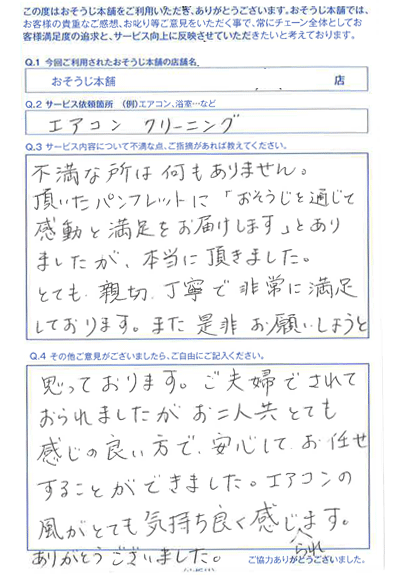 この度はおそうじ本舗をご利用いただき、ありがとうございます。おそうじ本舗では、
お客様の貴重なご感想、お叱り等ご意見をいただく事で、常にチェーン全体としてお
客様満足度の追求と、サービス向上に反映させていただきたいと考えております。
Q.1 今回ご利用されたおそうじ本舗の店舗名
おそうじ本舗 店
Q.2 サービス依頼箇所 (例)エアコン、浴室…など
エアコン クリーニング
Q.3 サービス内容について不満な点、ご指摘があれば教えてください。
不満な所は何もありません。
頂いたパンフレットに「おそうじを通じて
感動と満足をお届けします」とあり
ましたが、本当に頂きました。
とても、親切、丁寧で非常に満足
しております。また是非お願いしようと
Q.4 その他ご意見がございましたら、ご自由にご記入ください。
思っております。ご夫婦でされて
おられましたがお二人共とても
感じの良い方で、安心して、お任せ
することができました。エアコンの
風がとても気持ち良く感じられます。
ありがとうございました。
ご協力ありがとうございました。